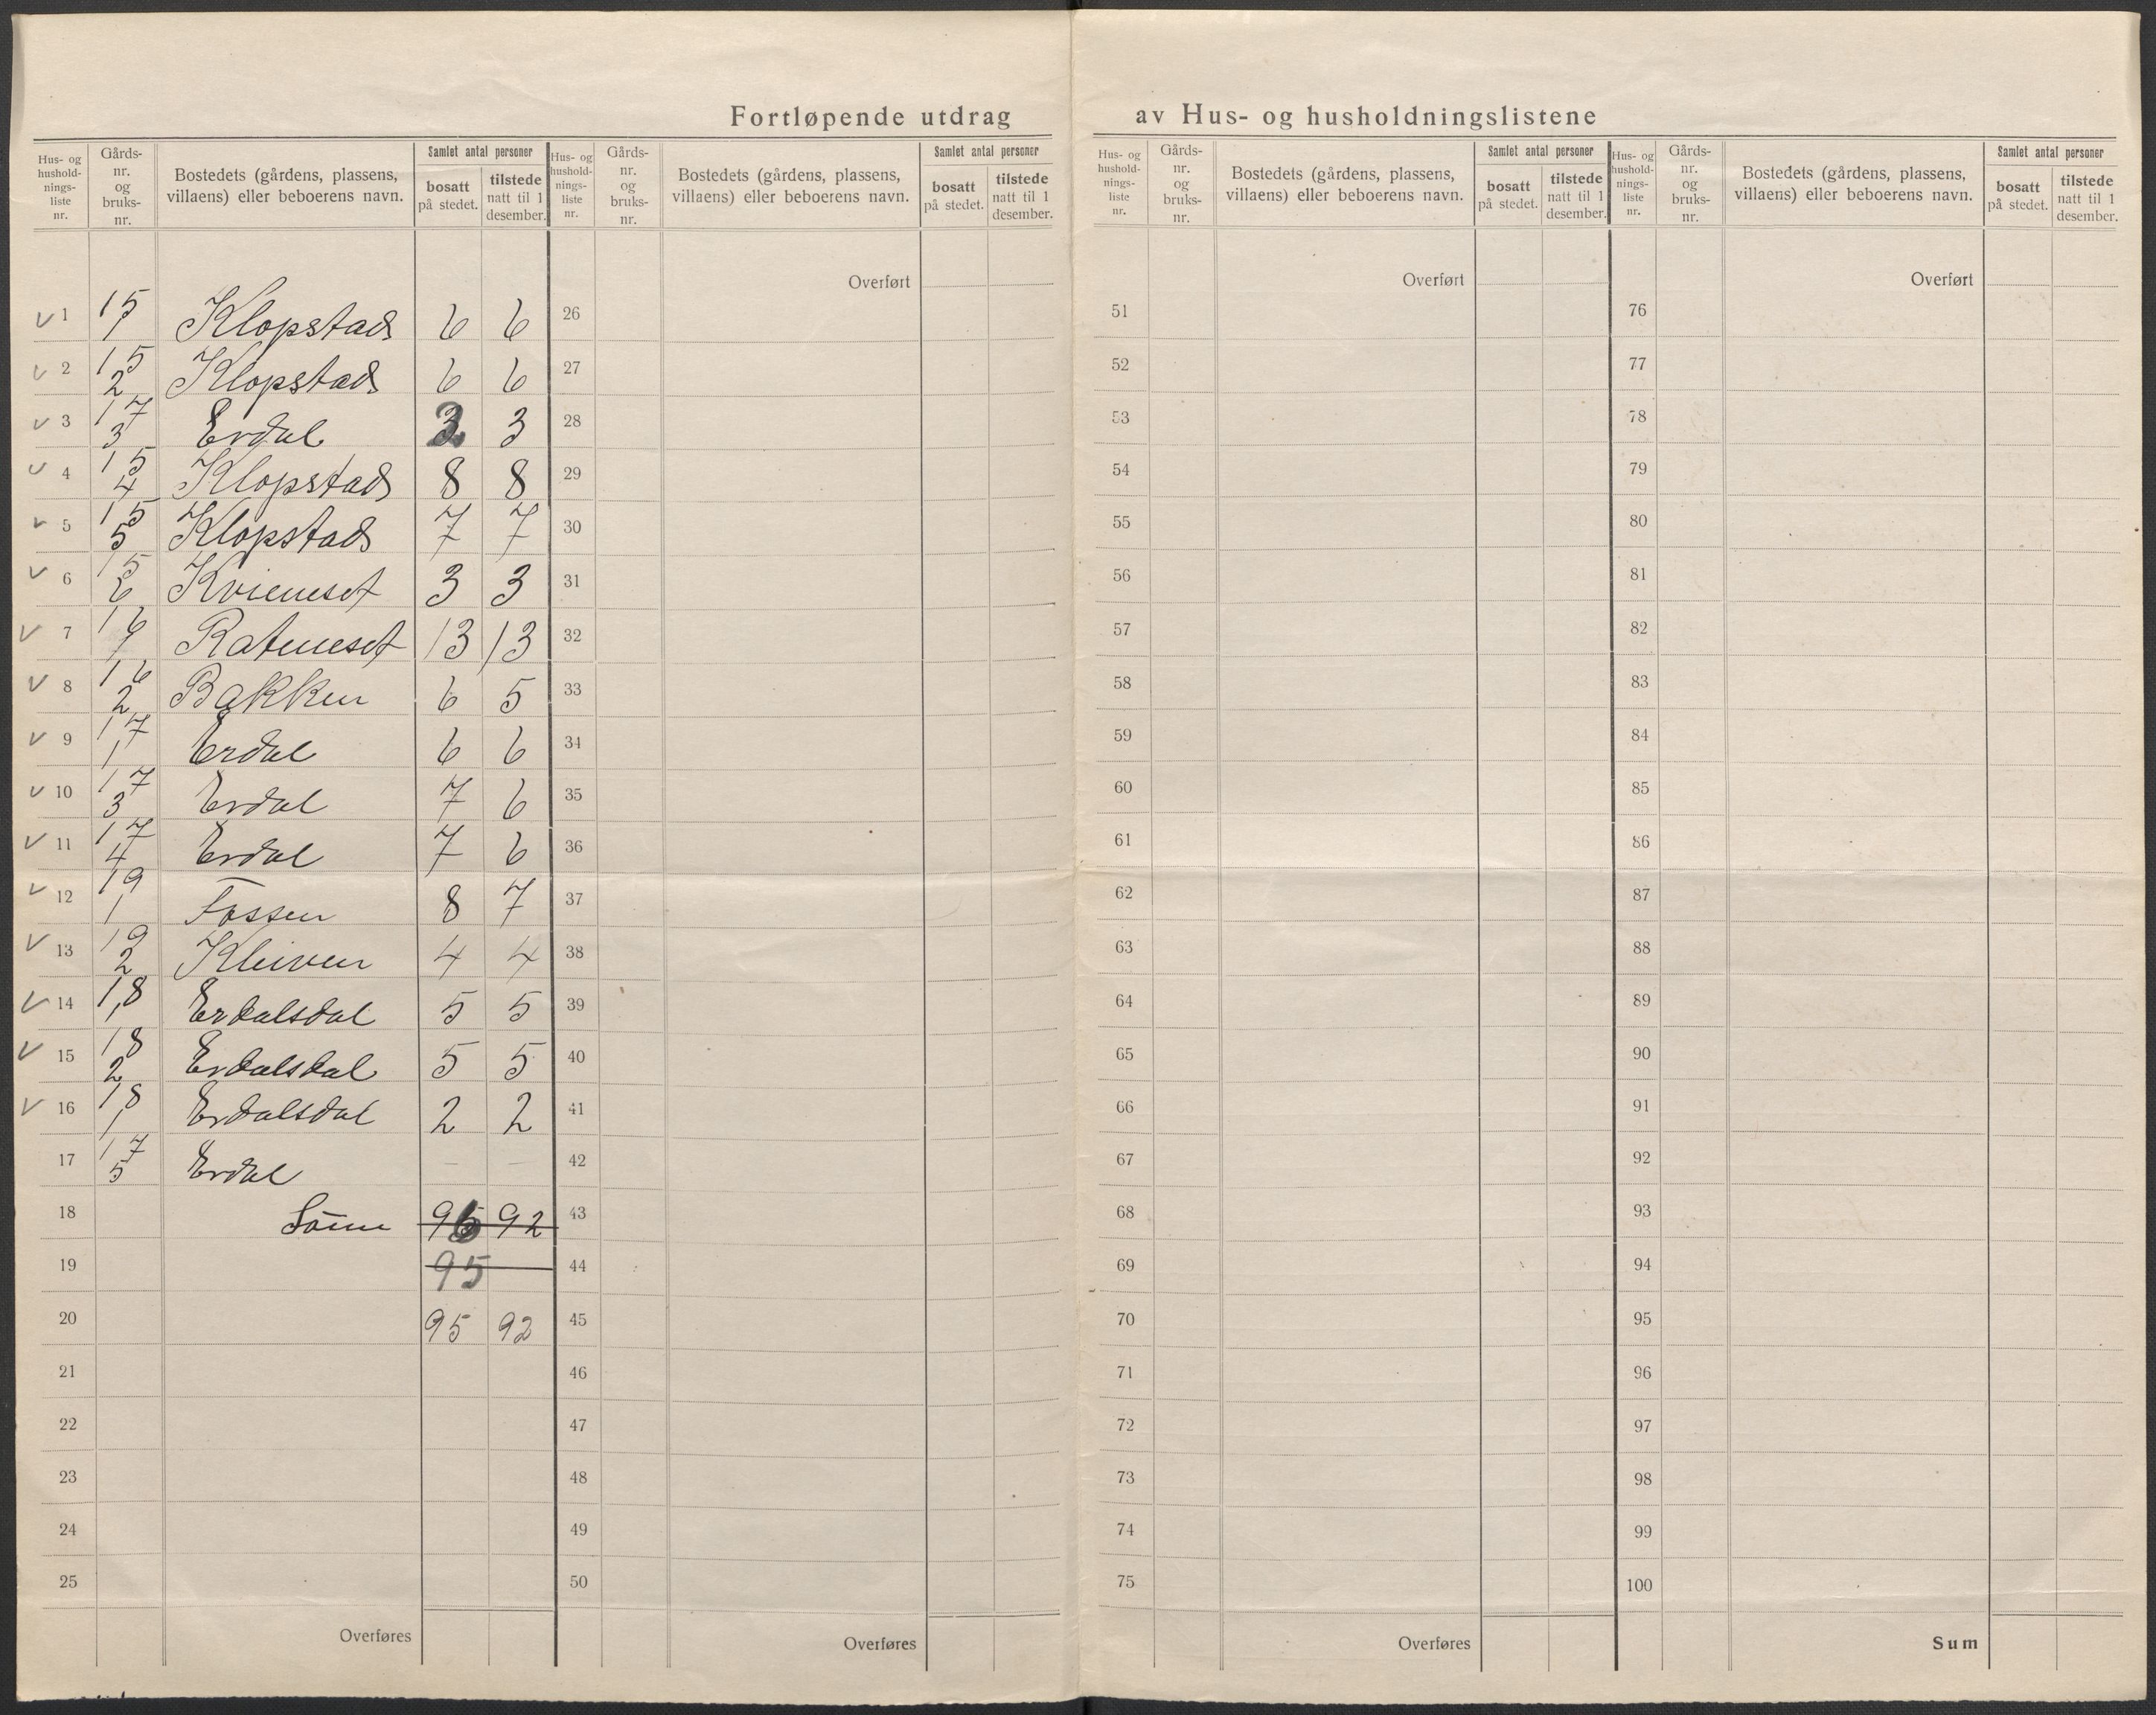 Fortløpende utdrag av Hus- og husholdningslistene
Hus- og hushold-nings-liste nr. Gårds-nr. og bruks-nr. Bostedets (gårdens, plassens, villaens) eller beboerens navn. Samlet antal personer bosatt på stedet. tilstede natt til 1 desember.
Hus- og hushold-nings-liste nr. Gårds-nr. og bruks-nr. Bostedets (gårdens, plassens, villaens) eller beboerens navn. Samlet antal personer bosatt på stedet. tilstede natt til 1 desember.
Hus- og hushold-nings-liste nr. Gårds-nr. og bruks-nr. Bostedets (gårdens, plassens, villaens) eller beboerens navn. Samlet antal personer bosatt på stedet. tilstede natt til 1 desember.
Hus- og hushold-nings-liste nr. Gårds-nr. og bruks-nr. Bostedets (gårdens, plassens, villaens) eller beboerens navn. Samlet antal personer bosatt på stedet. tilstede natt til 1 desember.
1 15/1 Klopstad 6 6
2 15/2 Klopstad 6 6
3 17/3 Erdal 3 3
4 15/4 Klopstad 8 8
5 15/5 Klopstad 7 7
6 15/6 Kvieneset 3 3
7 16/1 Ratneset 13 13
8 16/2 Bakken 6 5
9 17/1 Erdal 6 6
10 17/3 Erdal 7 6
11 17/4 Erdal 7 6
12 19/1 Fossen 8 7
13 19/2 Kleiven 4 4
14 18/1 Erdalsdal 5 5
15 18/2 Erdalsdal 5 5
16 18/1 Erdalsdal 2 2
17 17/5 Erdal — —
18 Sum 96 92
19 95
20 95 92
21
22
23
24
25
Overføres
Overført
26
27
28
29
30
31
32
33
34
35
36
37
38
39
40
41
42
43
44
45
46
47
48
49
50
Overføres
Overført
51
52
53
54
55
56
57
58
59
60
61
62
63
64
65
66
67
68
69
70
71
72
73
74
75
Overføres
Overført
76
77
78
79
80
81
82
83
84
85
86
87
88
89
90
91
92
93
94
95
96
97
98
99
100
Sum